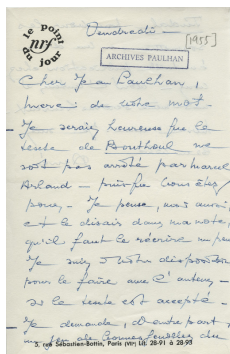 le point
nrf
du jour
Vendredi —
[1955]
ARCHIVES PAULHAN
Cher Jean Paulhan,
merci de votre mot.
Je serais heureuse que le
texte de Bonthoul ne
soit pas arrêté par Marcel
Arland — puisque vous êtes
pour — Je pense, mais aussi,
et le disais dans ma note,
qu'il faut le récrire un peu
Je suis à votre disposition
pour le faire avec l'auteur —
si le texte est accepté —
Je demande, d'autre part,
5, rue Sébastien-Bottin, Paris (VIIe) Lit. 28-91 à 28-93